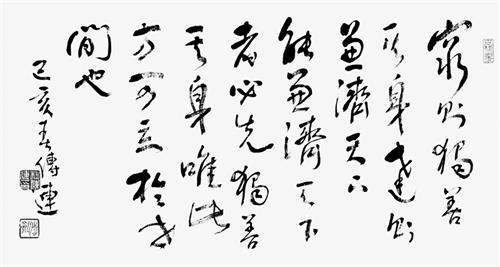 窮則獨善
其身達則
兼濟天下
能兼濟天下
者必先獨善
其身唯此
方可立於世
間也
己亥春傳連